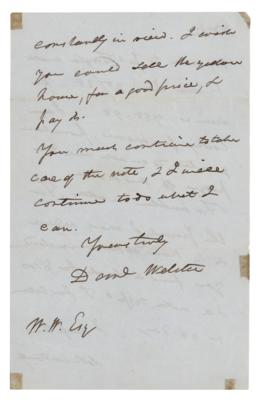 constantly in view. I wish
you could sell the yellow
house, for a good price, &
pay Ds.
You must continue to take
care of the note, & I will
continue to do what I
can.
Yours truly
Danl Webster
W. W. Esq